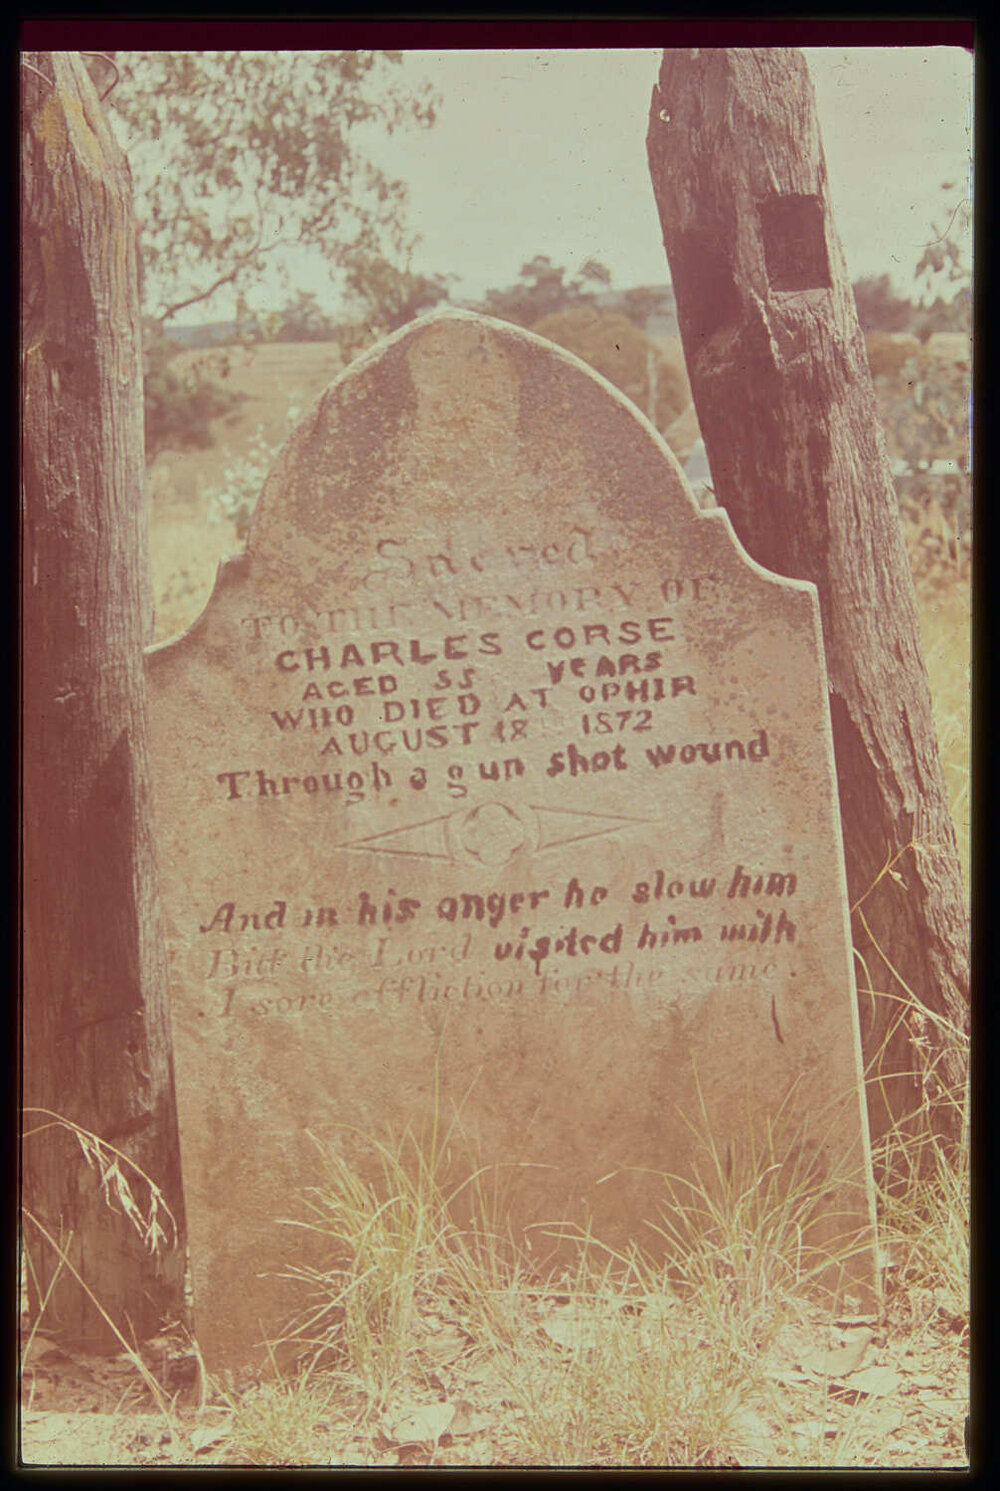 Sacred
TO THE MEMORY OF
CHARLES CORSE
AGED 55 YEARS
WHO DIED AT OPHIR
AUGUST 18TH 1872
Through a gun shot wound
And in his anger he slew him
But the Lord visited him with
A sore affliction for the same.